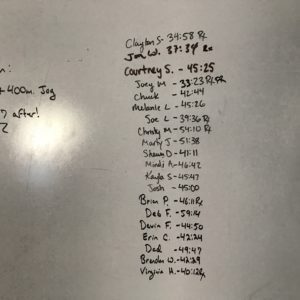 n:
+ 400m. Jog
after!
Clayton S - 34:58 Rx
Joe W. 37:34 Rx
Courtney S. - 45:25
Joey M - 33:23 Rx
Chuck - 42:44
Melanie L - 45:26
Soe L - 39:36 Rx
Christy M - 54:10 Rx
Marty J - 51:38
Shawn D - 41:11
Mindi A - 46:42
Kayla S - 45:47
Josh - 45:00
Brian P. - 46:11 Rx
Deb F. - 59:14
Devin F. - 44:50
Erin C. - 42:24
Dad - 49:47
Brendan W. - 42:29
Virginia H. - 40:12 Rx